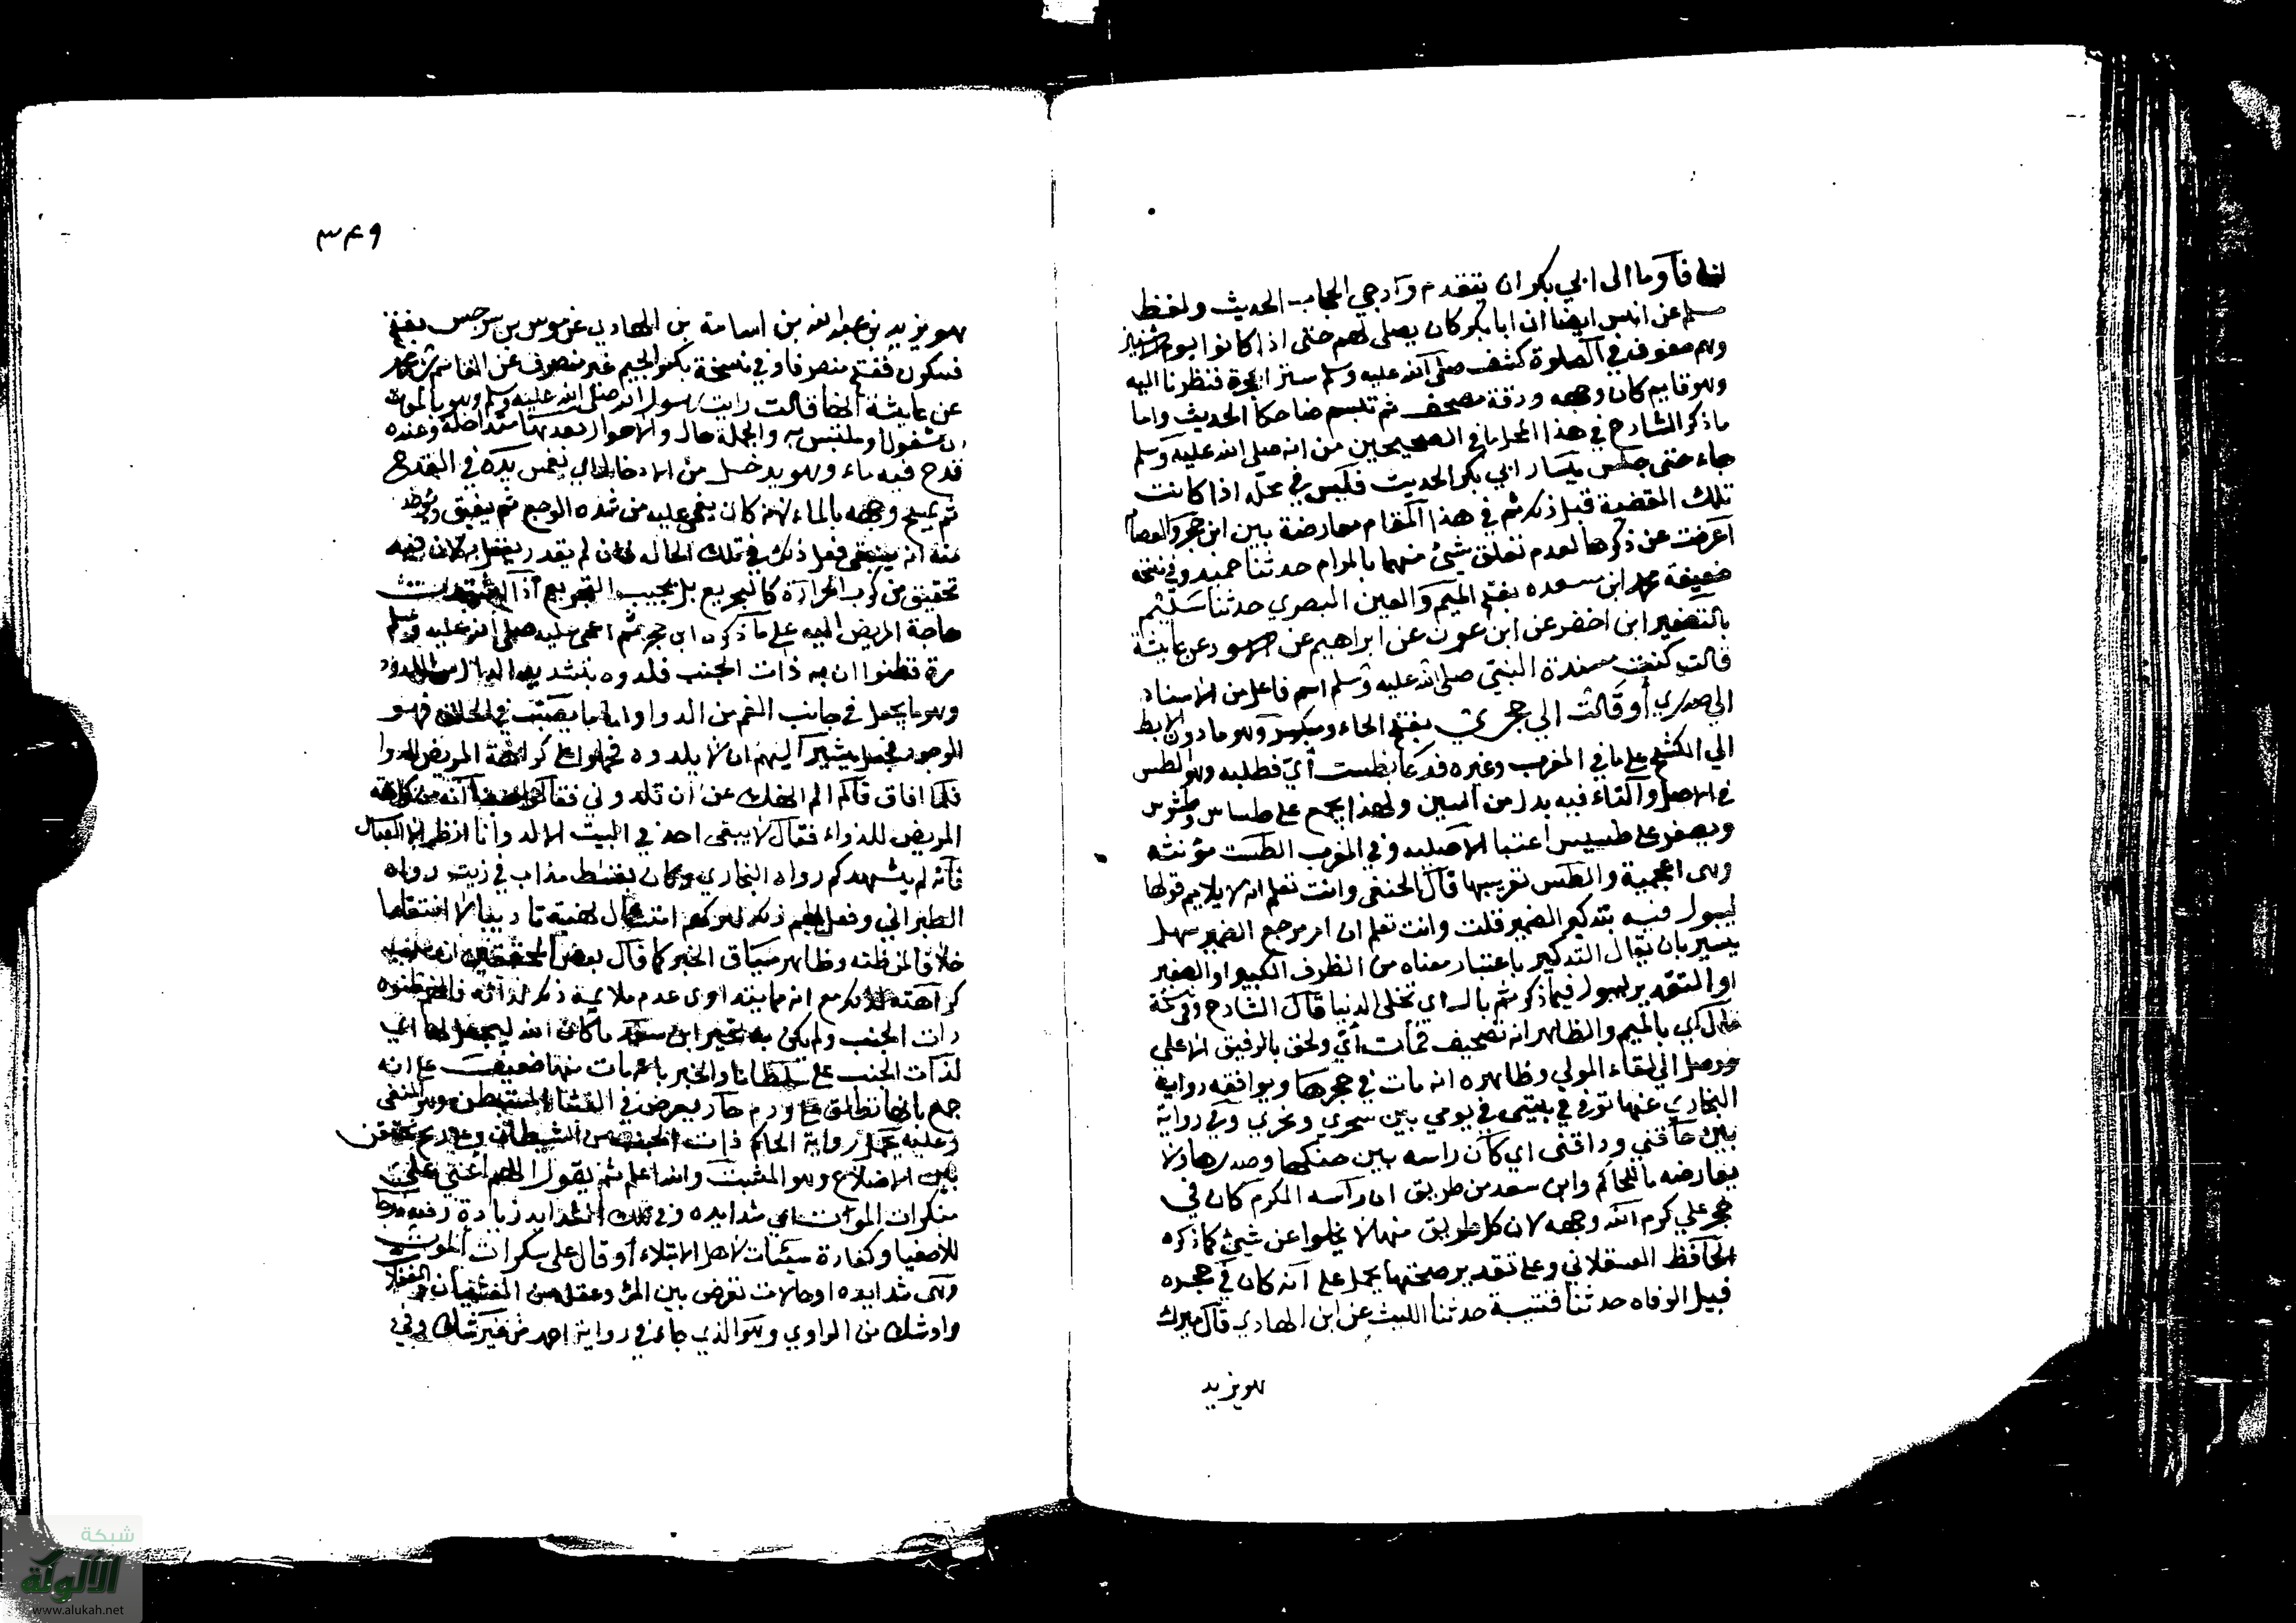 لنا فأوما الى ابي بكر ان يتقدم وأرخي الحجاب الحديث ولفظ
مسلم عن انس ايضا ان ابا بكر كان يصلي لهم حتى اذا كانوا يوم الاثنين
وهم صفوف في الصلوة كشف صلى الله عليه وسلم ستر الحجرة فنظرنا اليه
وهو قايم كان وجهه ورقة مصحف ثم تبسم ضاحكا الحديث واما
ما ذكر الشارح في هذا المحل ما في الصحيحين من انه صلى الله عليه وسلم
جاء حتى جلس يسار ابي بكر الحديث فليس في محله اذا كانت
تلك القضية قبل ذلك ثم في هذا المقام معارضة بين ابن حجر والعصام
اعرضت عن ذكرها لعدم تعلق شيئ منهما بالمرام حدثنا حميد وفي نسخة
ضعيفة محمد ابن مسعده بفتح الميم والعين البصري حدثنا سليم
بالتصغير ابن اخضر عن ابن عون عن ابراهيم عن الاسود عن عايشة
قالت كنت مسندة النبي صلى الله عليه وسلم اسم فاعل من الاسناد
الى صدري أو قالت الى حجري بفتح الحاء وبكسر وهو ما دون الابط
الي الكشح على ما في المغرب وغيره فدعا بطست أي فطلبه وهو الطس
في الاصل والتاء فيه بدل من السين ولهذا يجمع على طساس وطسوس
ويصغر على طسيس اعتبا الاصليه وفي المغرب الطست مؤنثه
وهي اعجمية والطس تعريبها قال الحنفي وانت تعلم انه لا يلايم قولها
ليبول فيه بتذكير الضمير قلت وانت تعلم ان امر مرجع الضمير سهل
يسير بان يقال التذكير باعتبار معناه من الظرف الكبير او الصغير
او التقدير ليبول فيما ذكر ثم بال اي تخلى الدنيا قال الشارح وفي نسخة
مال اي بالميم والظاهر انه تصحيف فمات أي ولحق بالرفيق الاعلي
ووصل الى لقاء المولي وظاهره انه مات في حجرها ويوافقه رواية
البخاري عنها توفي في بيتي في يومي بين سحري ونحري وفي رواية
بين حاقنتي وذاقنتي اي كان راسه بين حنكها وصدرها ولا
يعارضه ما للحاكم وابن سعد من طريق ان راسه المكرم كان في
حجر علي كرم الله وجهه لان كل طريق منها لا يخلوا عن شيئ كما ذكره
الحافظ العسقلاني وعلى تقدير صحتها يحمل على انه كان في حجره
قبيل الوفاه حدثنا قتيبة حدثنا الليث عن ابن الهادي قال ميرك
هو يزيد
٣٤٩
هو يزيد بن عبد الله بن اسامة بن الهادي عن موسى بن سرجس بفتح
فسكون ففتح منصرفا وفي نسخة بكسر الجيم غير منصرف عن القاسم بن محمد
عن عايشة انها قالت رايت رسول الله صلى الله عليه وسلم وهو بالموت
مشغول او ملتبس به والجملة حال والاحوال بعدها متداخلة وعنده
قدح فيه ماء وهو يدخل من الادخال اي يغمس يده في القدح
ثم يمسح وجهه بالماء لانه كان يغمى عليه من شده الوجع ثم يفيق ويؤخذ
منه انه ينبغي فعل ذلك في تلك الحال فان لم يقدر يفعل به لان فيه
تحقيق من كرب الحرارة كالتجريع بل يجب التجريع اذا اشتدت
حاجة المريض اليه على ما ذكره ابن حجر ثم اغمى عليه صلى الله عليه وسلم
مرة فظنوا ان به ذات الجنب فلدوه بتشديد الدال من اللدود
وهو ما يجعل في جانب الفم من الدوا واما ما يصب في الحلق فهو
الوجور فجعل يشير اليهم ان لا يلدوه فحملوا على كراهة المريض للدوا
فلما افاق قال الم انهكم عن ان تلدوني فقالوا ظننا انه من كراهة
المريض للدواء فقال لا يبقى احد في البيت الا لد وانا انظر الا العباس
فانه لم يشهدكم رواه البخاري وكان بقسط مذاب في زيت رواه
الطبراني وفعل بهم ذلك لتركهم امتثال نهيه تاديبا لا انتقاما
خلافا لمن ظنه وظاهر سياق الخبر كما قال بعض المحققين ان سبب
كراهته لذلك مع انه مما يتداوى عدم ملايمة ذلك لدائه فانهم ظنوه
ذات الجنب ولم يكن به لخبر ابن سعد ما كان الله ليجعل لها اي
لذات الجنب على سلطانا والخبر بانه مات منها ضعيف على انه
جمع بانها تطلق على ورم حار يعرض في الغشا المستبطن وهو المنفى
وعليه يحمل رواية الحاكم ذات الجنب من الشيطان وعلى ريح تحتقن
بين الاضلاع وهو المثبت والله اعلم ثم يقول اللهم اعني على
منكرات الموت اي شدايده وفي تلك الشدايد زيادة رفع درجات
للاصفيا وكفارة سيئات لاهل الابتلاء أو قال على سكرات الموت
وهي شدايده او حالات تعرض بين المرء وعقله من الغشيان والغفلة
واو شك من الراوي وهو الذي جا في رواية احمد من غير شك وفي
شبكة
الألوكة
www.alukah.net